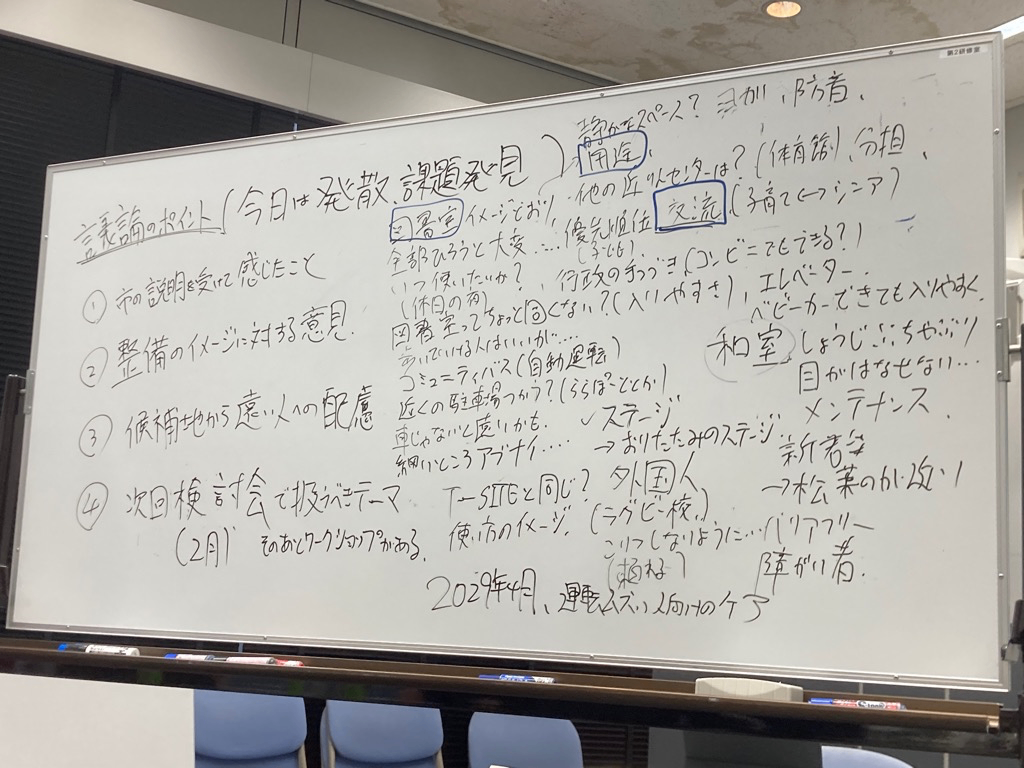 第2研修室
議論のポイント(今日は発散、課題発見)
① 市の説明を受けて感じたこと
② 整備のイメージに対する意見
③ 候補地から遠い人への配慮
④ 次回検討会で扱うべきテーマ
(2月) そのあとワークショップがある。
静かなスペース? ヨガ、防音、
用途、
・他の近リンセンターは?(体育館)、分担、
図書室 イメージどおり
全部ひろうと大変… 優先順位 交流 (子育て←→シニア)
(子ども)
いつ使いたいか?、行政の手つづき(コンビニでもできる?)
(休日の夜)
図書室ってちょっと固くない?(入りやすさ)、エレベーター
ベビーカーできても入りやすく
歩いていける人はいいが…
コミュニティバス(自動運転)
近くの駐車場つかう?(ららぽーととか)
車じゃないと遠いかも
細いところアブナイ…
和室 しょうじぶちやぶり
目がはなせない…
メンテナンス
✓ステージ
→おりたたみのステージ
T-SITEと同じ?
使い方のイメージ。
外国人
(ラグビー校)
こりつしないように…
バリアフリー
障がい者
→松葉のが近い
2029年4月、運転ムズい人向けのケア